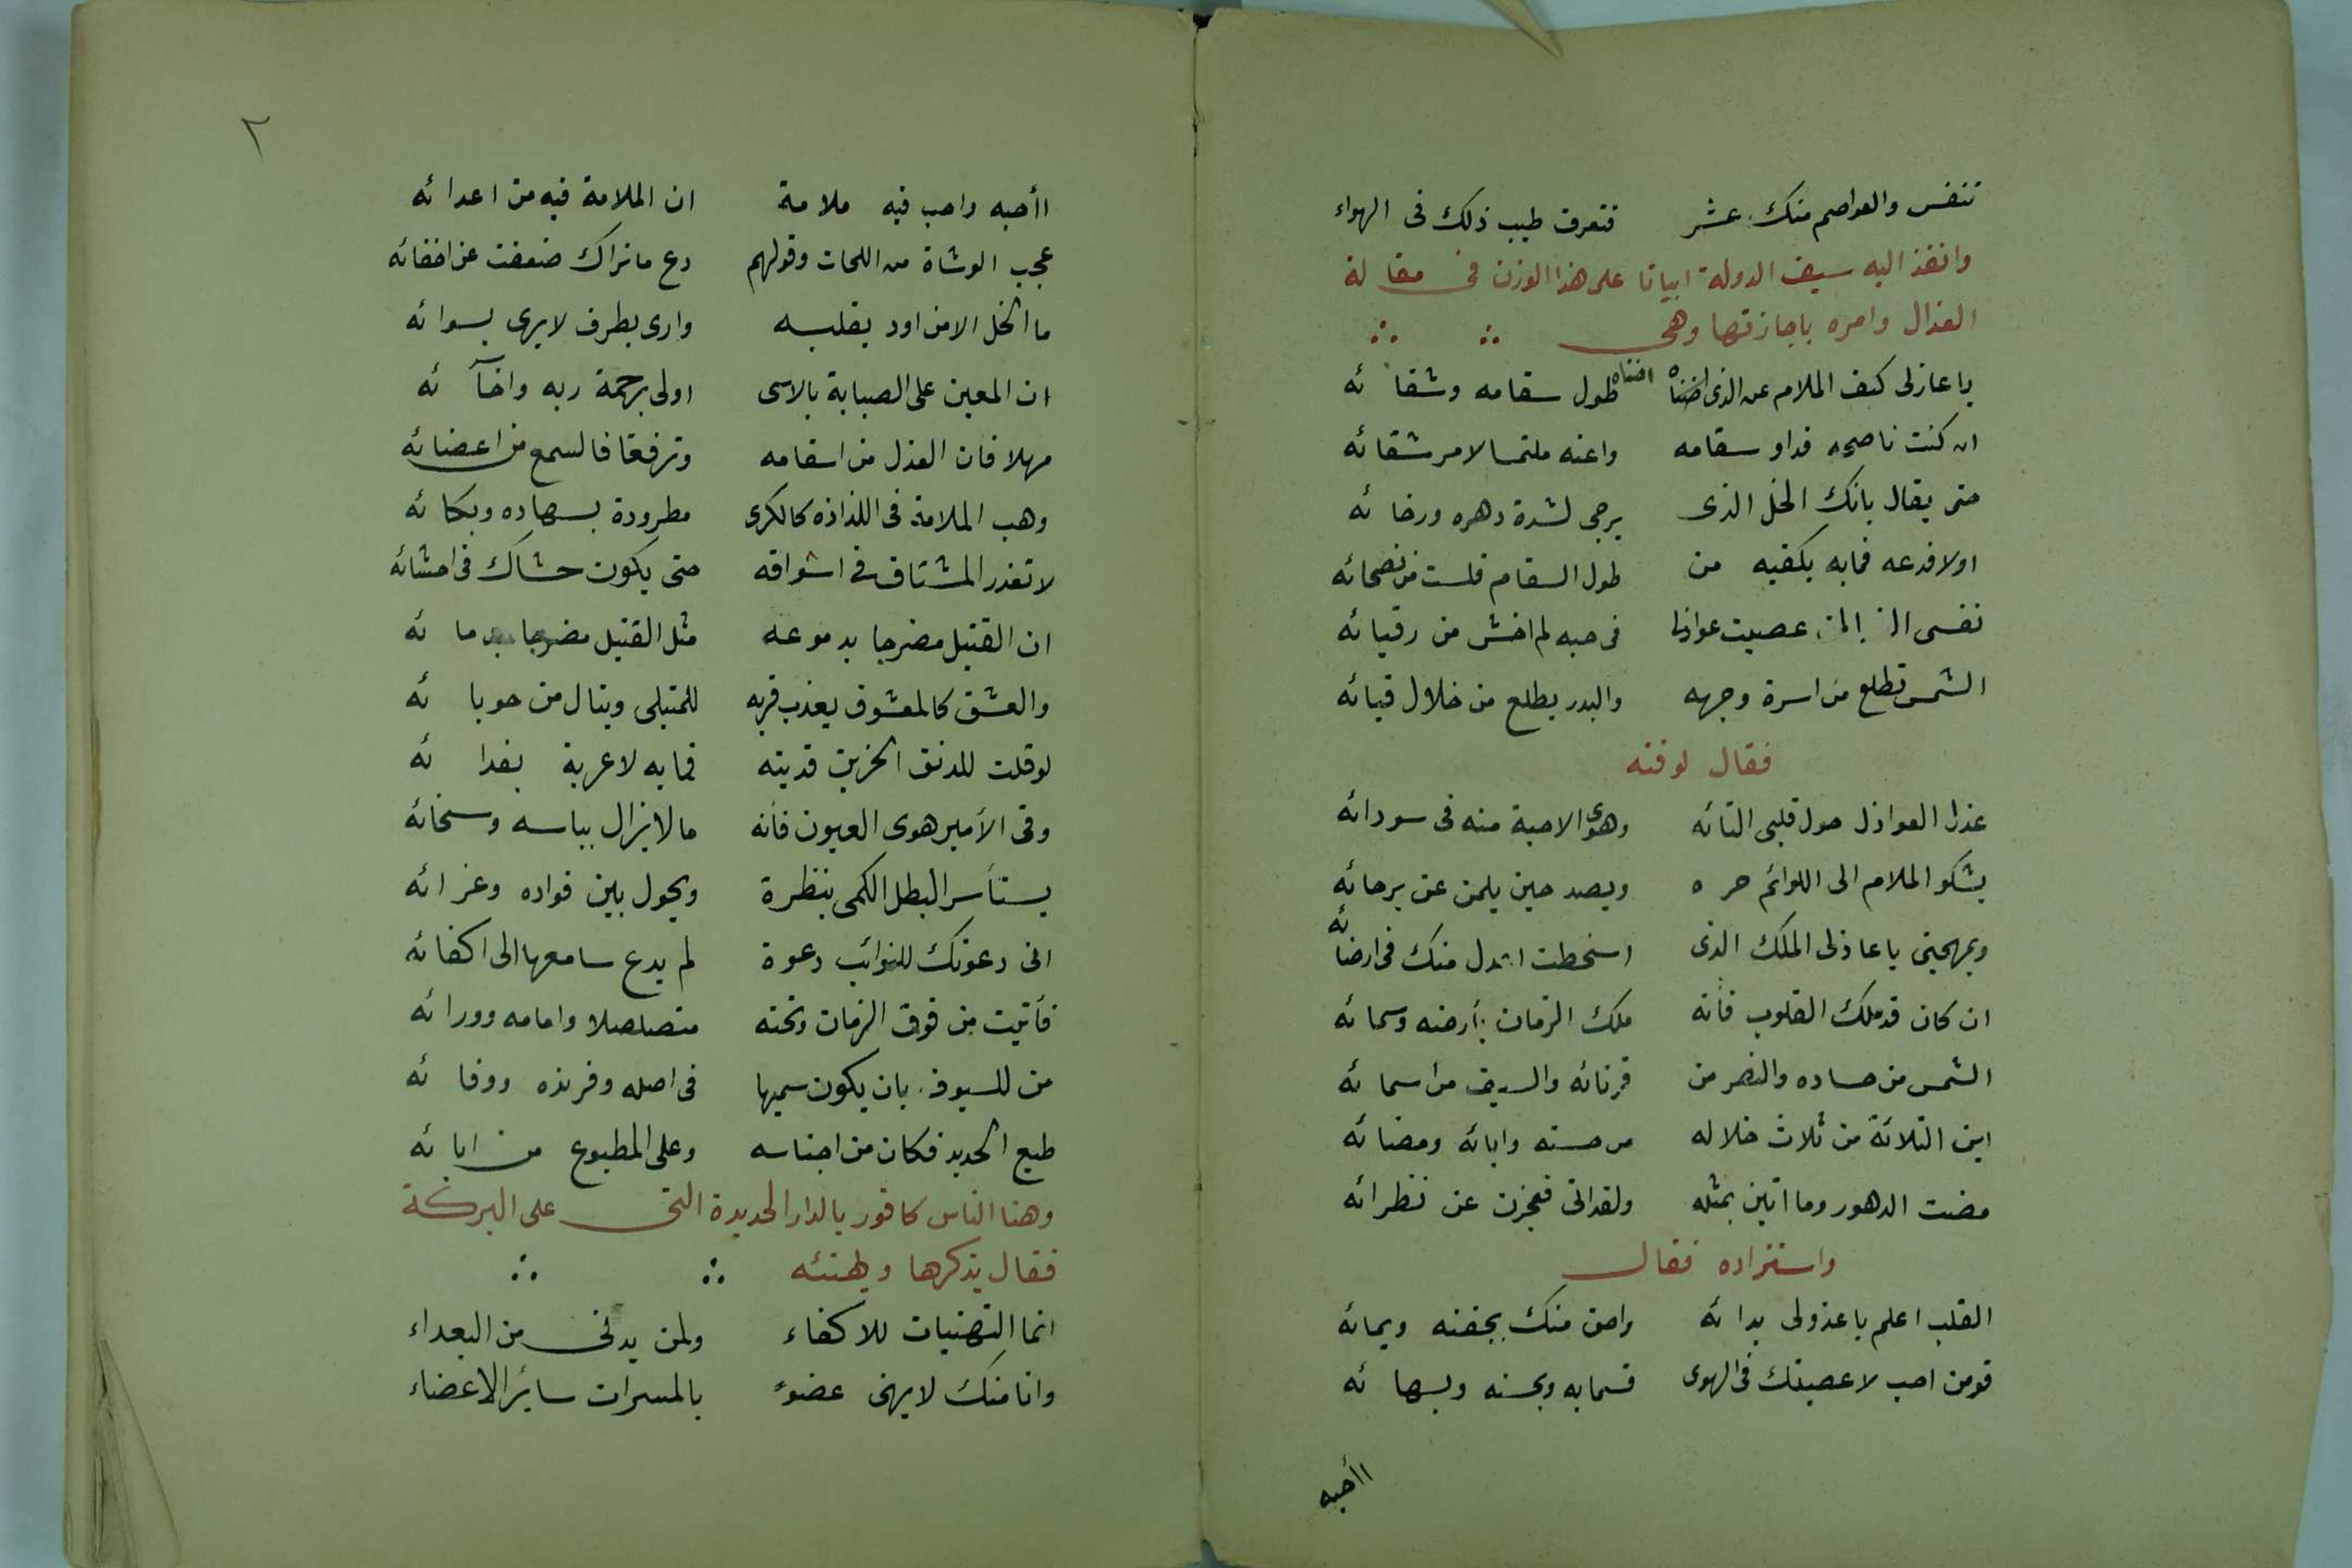 تنفس والعواصم منك عشر فتعرف طيب ذلك فى الهواء
وانفذ اليه سيف الدولة ابياتا على هذا الوزن فى مقالة
العذال وامره باجازتها وهى
يا عاذلى كف الملام عن الذى اضناه اضناه طول سقامه وشقائه
ان كنت ناصحه فداو سقامه واعنه ملتمسا لامر شقائه
حتى يقال بانك الخل الذى يرجى لشدة دهره ورخائه
اولا فدعه فما به يكفيه من طول السقام فلست من نصحائه
نفسى عصيت عواذلا فى حبه لم اخش من رقبائه
الشمس تطلع من اسرة وجهه والبدر يطلع من خلال قبائه
فقال لوقته
عذل العواذل حول قلبى التائه وهوى الاحبة منه فى سودائه
يشكو الملام الى اللوائم حره ويصد حين يلمن عن برحائه
وبمهجتى يا عاذلى الملك الذى اسخطت اعدل منك فى ارضائه
ان كان قد ملك القلوب فأنه ملك الزمان بأرضه وسمائه
الشمس من حساده والنصر من قرنائه والسيف من اسمائه
اين الثلاثة من ثلاث خلاله من حسنه وابائه ومضائه
مضت الدهور وما اتين بمثله ولقد اتى فعجزن عن نظرائه
واستزاده فقال
القلب اعلم يا عذولى بدائه واحق منك بجفنه وبمائه
فومن احب لاعصينك فى الهوى قسما به وبحسنه وبهائه
اأحبه
٢
اأحبه واحب فيه ملامة ان الملامة فيه من اعدائه
عجب الوشاة من اللحات وقولهم دع ما نراك ضعفت عن اخفائه
ما الخل الا من اود بقلبه وارى بطرف لا يرى بسوائه
ان المعين على الصبابة بالاسى اولى برحمة ربه واخآئه
مهلا فان العذل من اسقامه وترفقا فالسمع من اعضائه
وهب الملامة فى اللذاذه كالكرى مطرودة بسهاده وبكائه
لا تعذر المشتاق فى اشواقه حتى يكون حشاك فى احشائه
ان القتيل مضرجا بدموعه مثل القتيل مضرجا بدمائه
والعشق كالمعشوق يعذب قربه للمبتلى وينال من حوبائه
لو قلت للدنف الحزين فديته مما به لاغرته بفدائه
وقى الأمير هوى العيون فأنه ما لا يزال بباسه وسخائه
يستأسر البطل الكمى بنظرة ويحول بين فواده وعزائه
انى دعوتك للنوائب دعوة لم يدع سامعها الى اكفائه
فأتيت من فوق الزمان وتحته متصلصلا وامامه وورائه
من للسيوف بان يكون سميها فى اصله وفرنده ووفائه
طبع الحديد فكان من اجناسه وعلى المطبوع من ابائه
وهنا الناس كافور بالدار الجديدة التى على البركة
فقال يذكرها ويهنئه
انما التهنيات للاكفاء ولمن يدنى من البعداء
وانا منك لا يهنى عضوٌ بالمسرات سائر الاعضاء